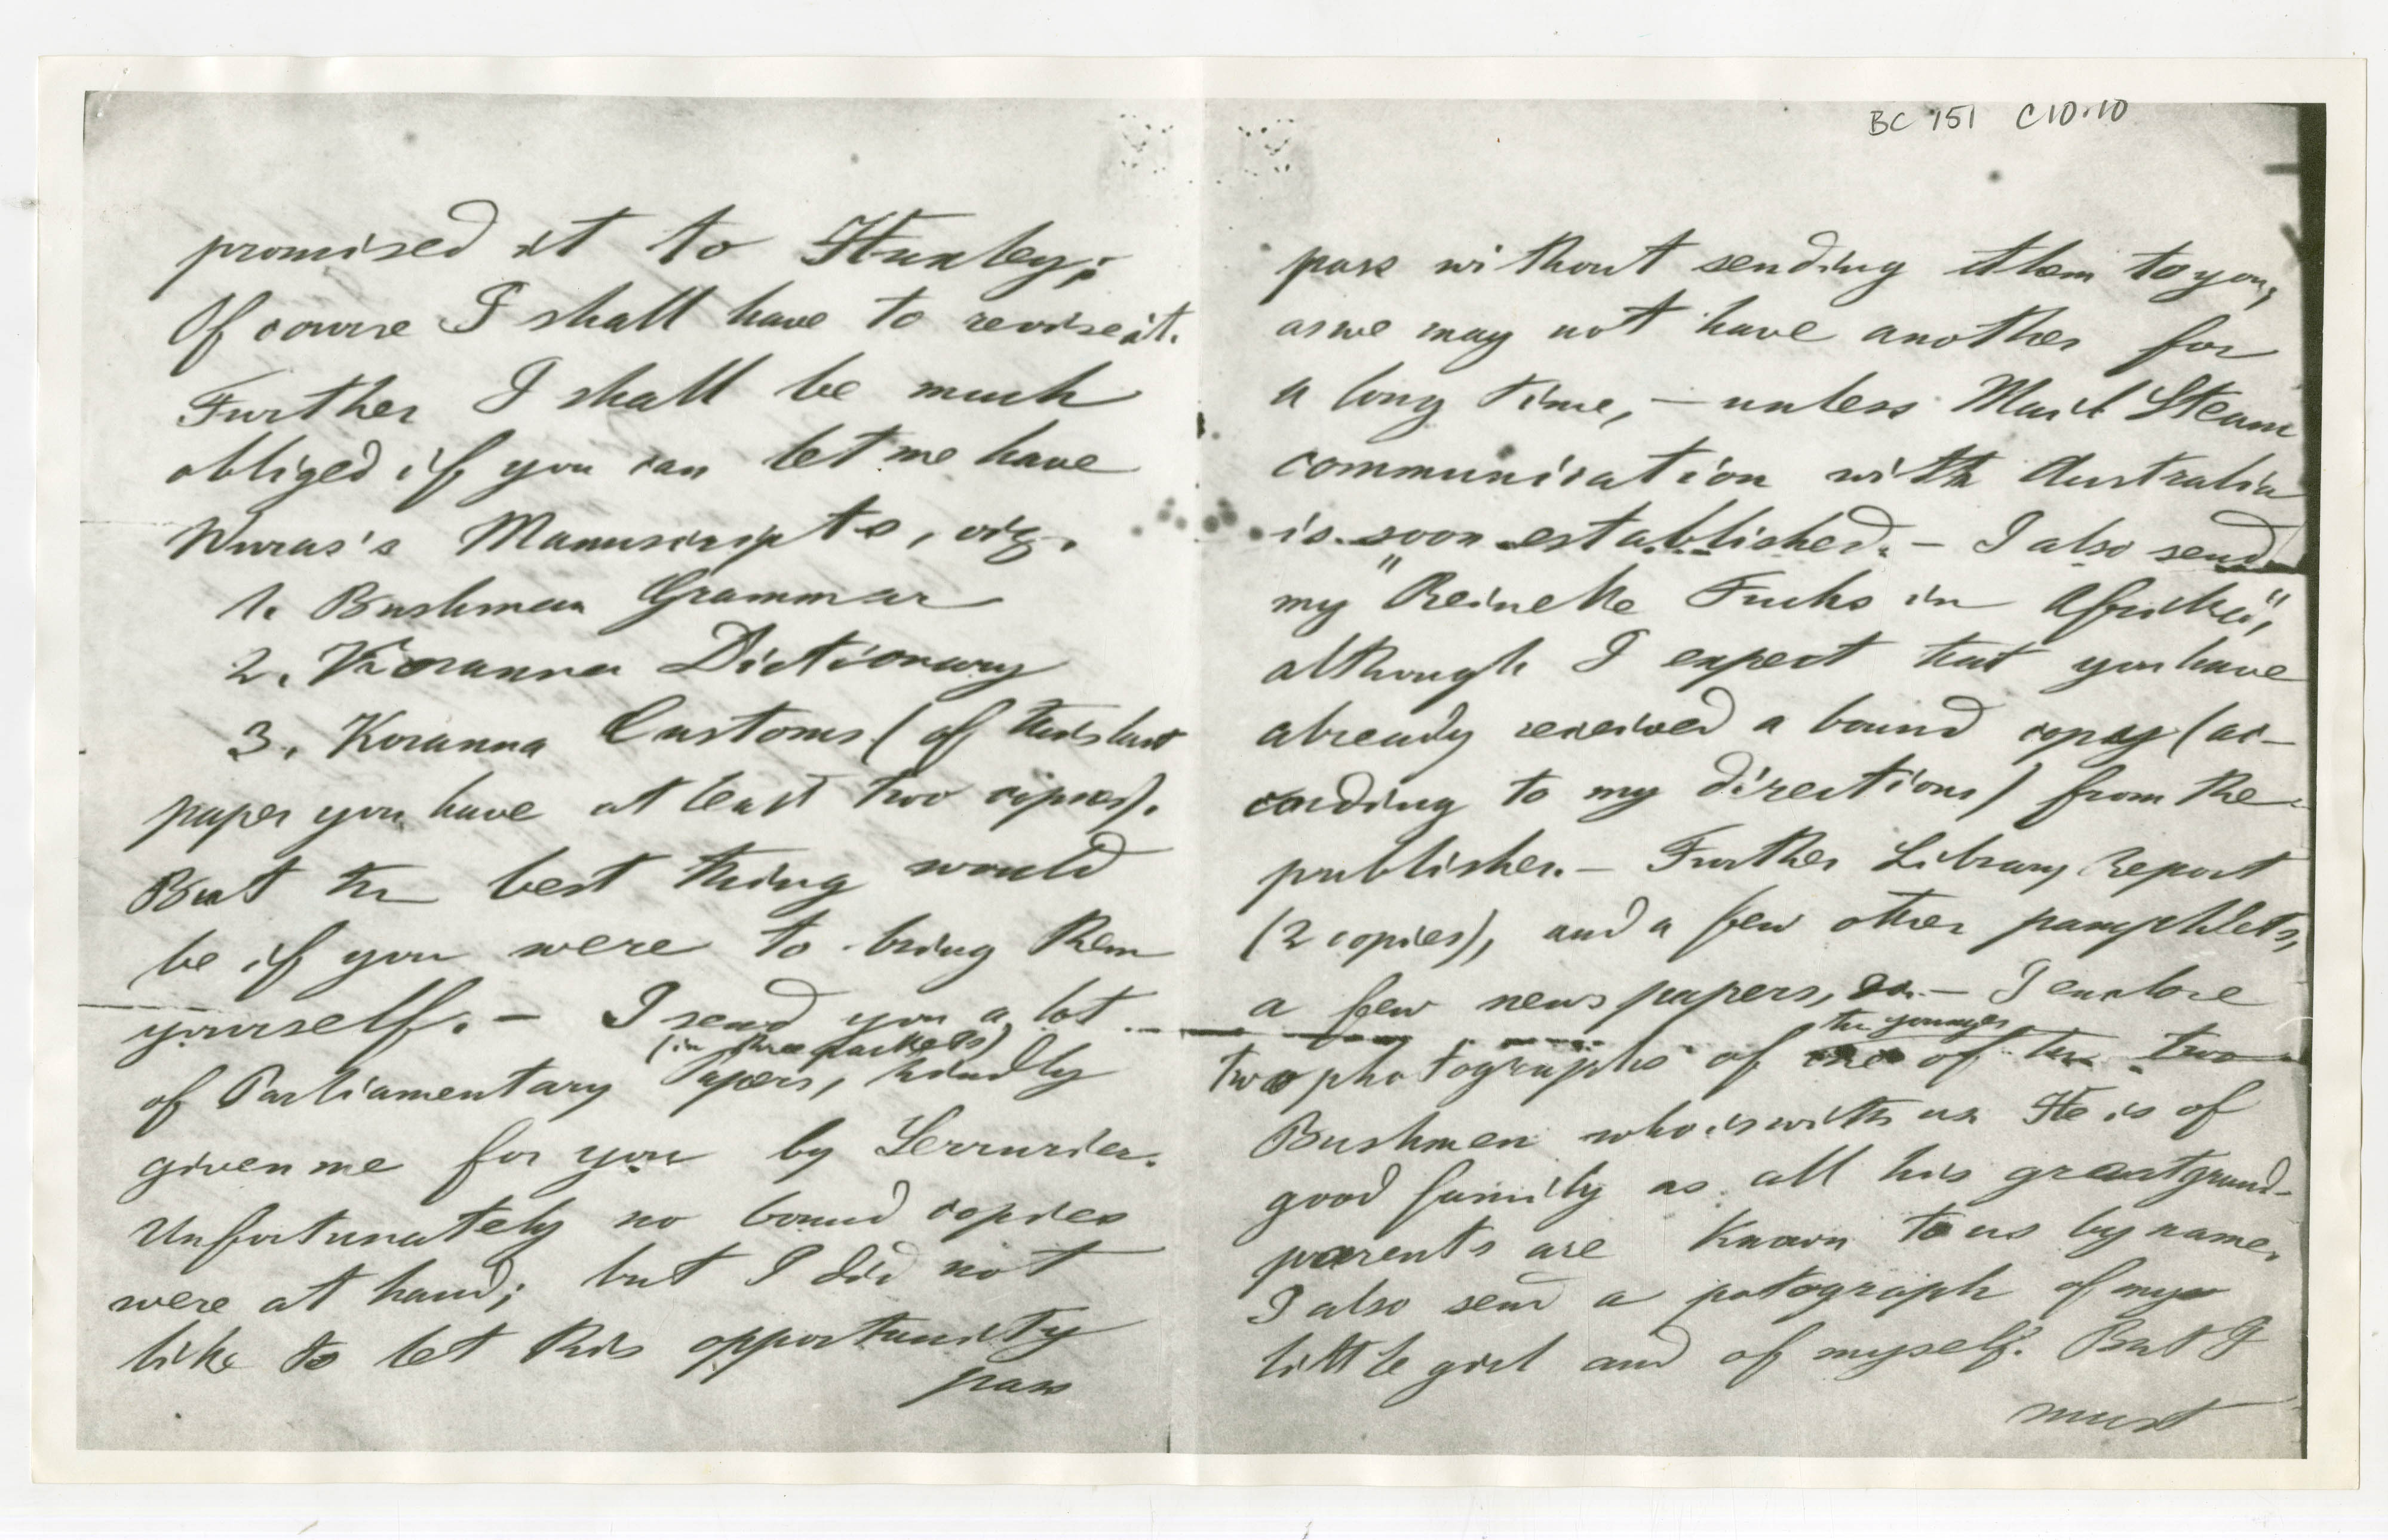 BC 151 C10.10
promised it to Huxley;
Of course I shall have to revise it.
Further I shall be much
obliged if you can let me have
Wuras's Manuscripts, viz.
1. Bushman Grammar
2. Koranna Dictionary
3. Koranna Customs (of this last
paper you have at least two copies).
But the best thing would
be if you were to bring them
yourself. – I send you a lot
(in three packets)
of Parliamentary Papers, kindly
given me for you by Lerrurier.
Unfortunately no bound copies
were at hand; but I did not
like to let this opportunity
pass
pass without sending them to you,
as we may not have another for
a long time, – unless Mail Steam
communication with Australia
is soon established. – I also send
my "Reineke Fuchs in Afrika",
although I expect that you have
already received a bound copy (ac-
cording to my directions) from the
publisher. – Further Library Report
(2 copies), and a few other pamphlets,
a few news papers, – I enclose
the younger
two photographs of of the two
Bushmen who is with us. He is of
good family as all his greatgrand-
parents are known to us by name.
I also send a potograph of my
little girl and of myself. But I
must